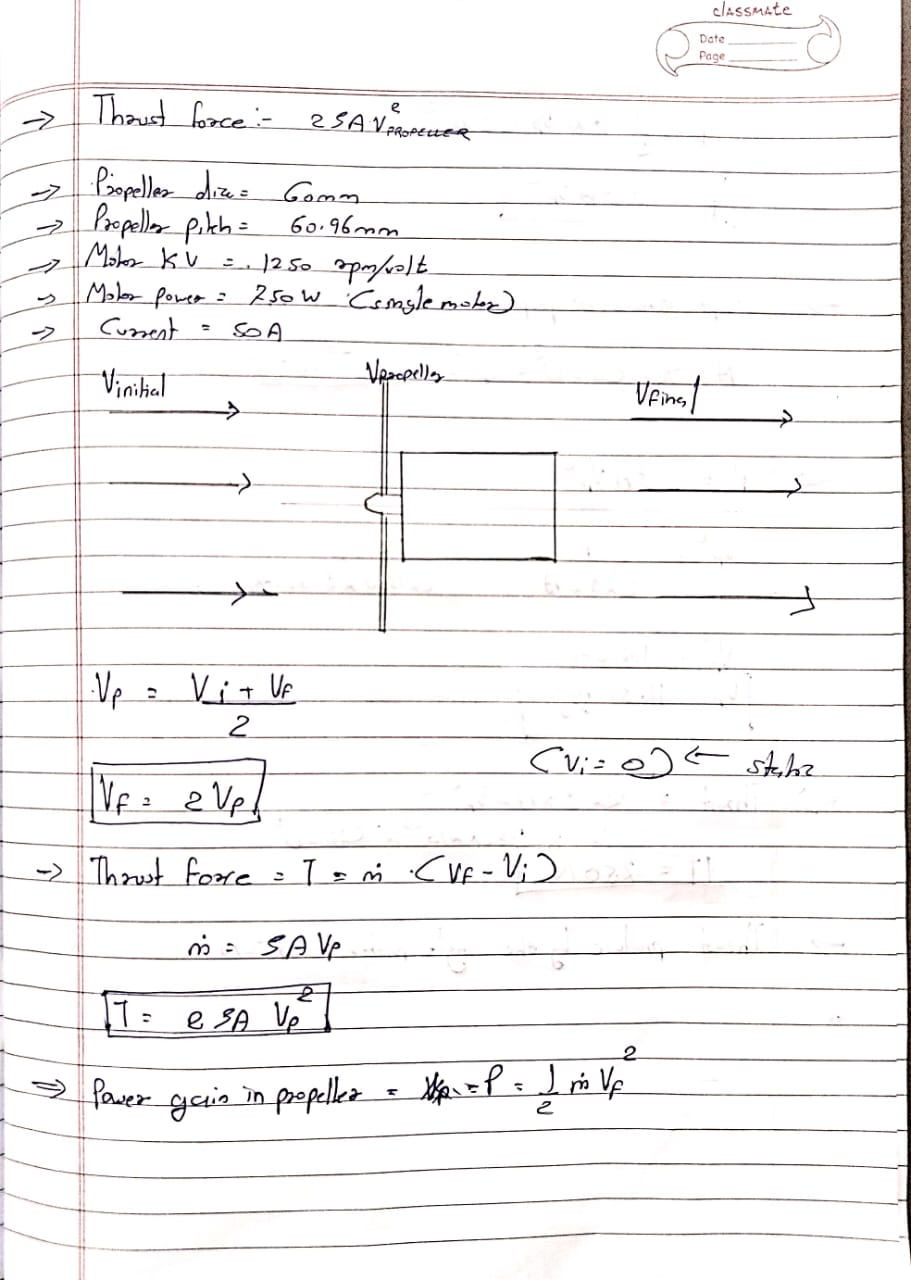 classmate
Date
Page
→ Thrust force :- 2 ρ A V²PROPELLER
→ Propeller dia = 60mm
→ Propeller pitch = 60.96mm
→ Motor KV = 1250 rpm/volt
→ Motor power = 750 W (single motor)
→ Current = 50A
Vinitial Vpropeller Vfinal
Vp = Vi + Vf
2
(Vi = 0) ←
Vf = 2 Vp
→ Thrust force = T = ṁ · (Vf - Vi)
ṁ = ρ A Vp
T = 2 ρ A Vp²
⇒ Power gain in propeller = P = 1/2 ṁ Vf²